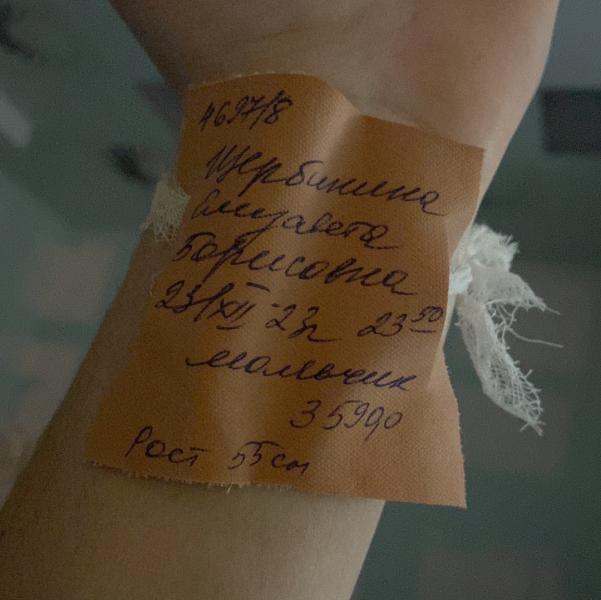 4697/8
Щербинина
Елизавета
Борисовна
23/XII-23г 23 50
мальчик
3590
Рост 55см